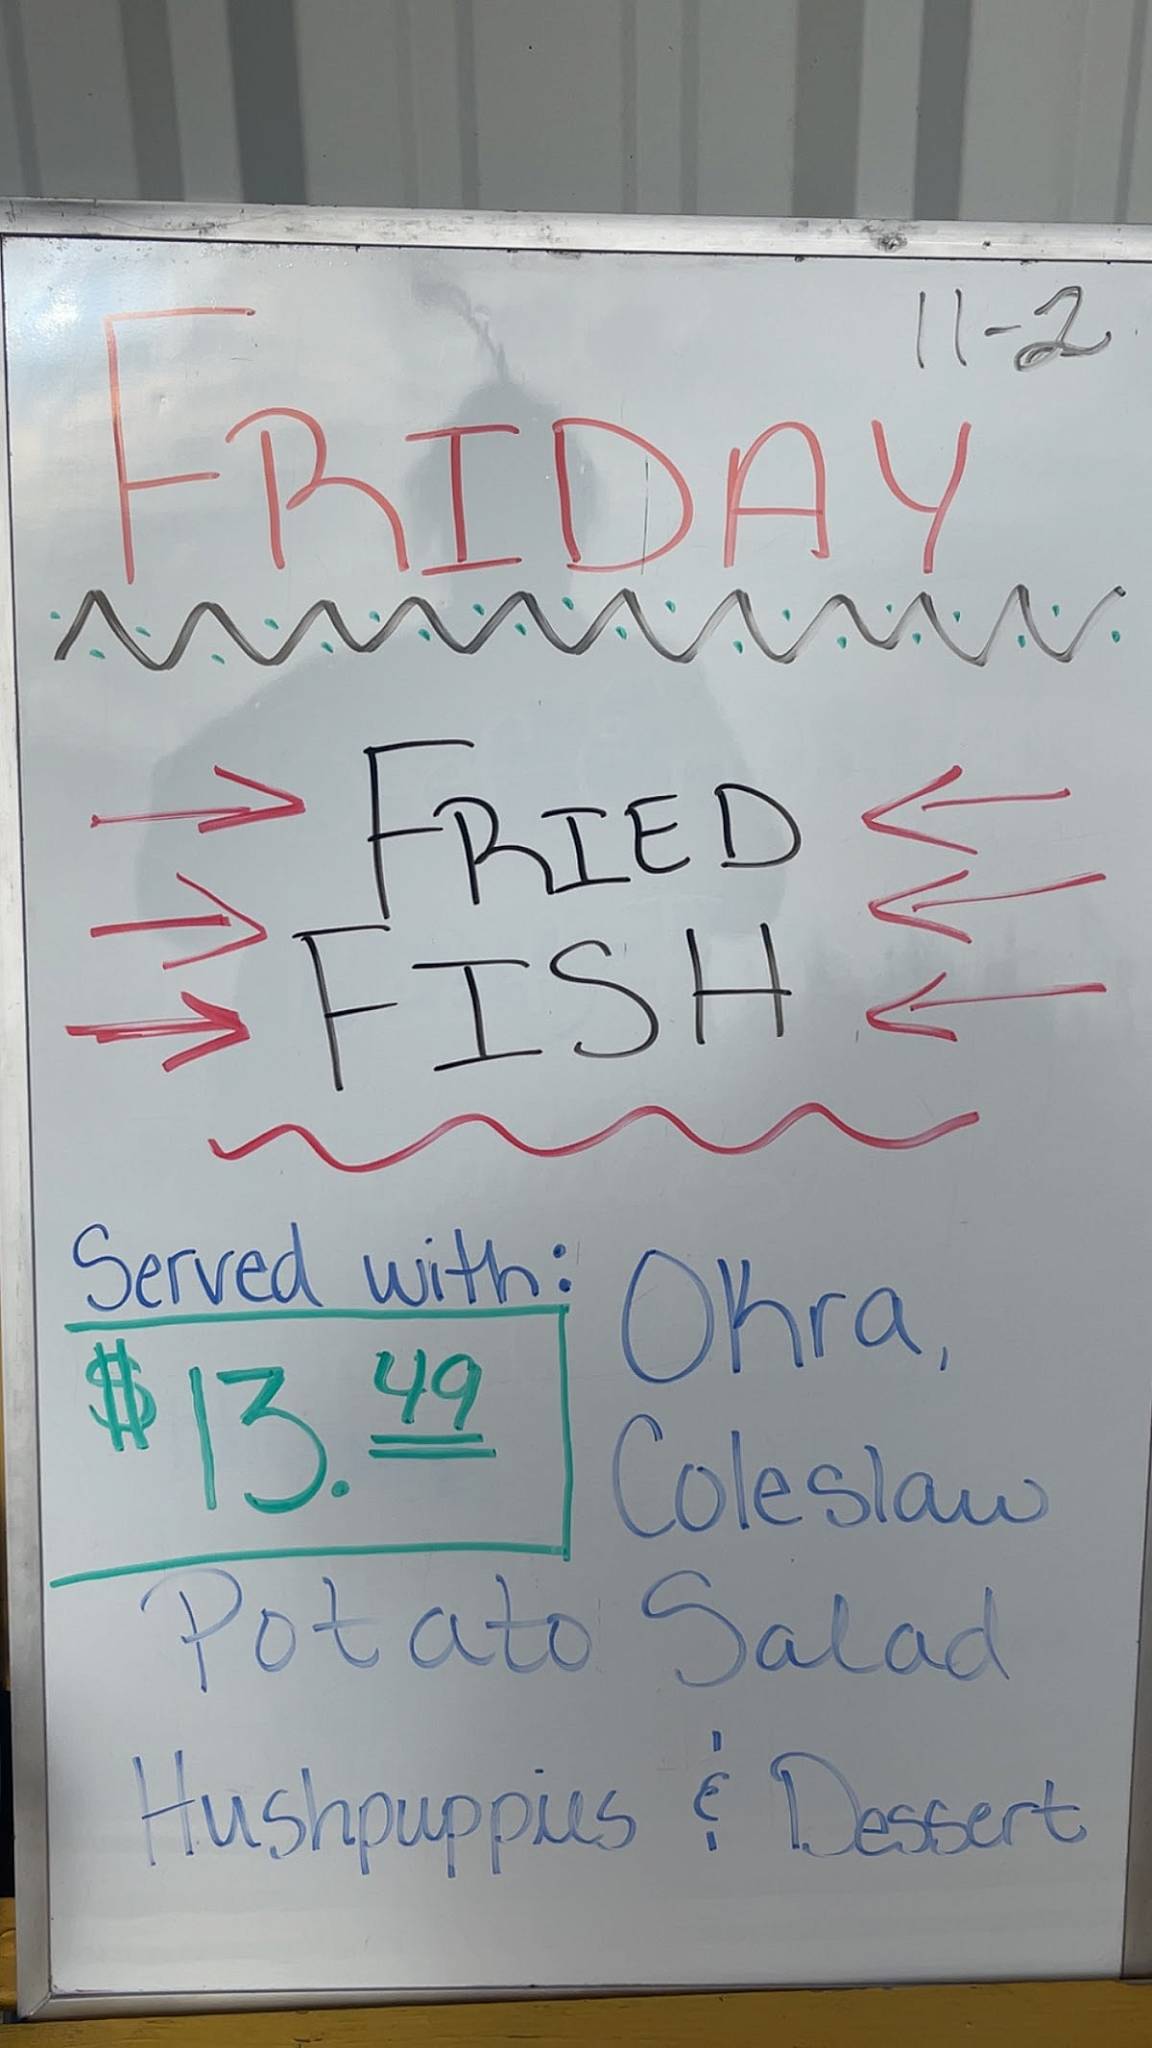 11-2
FRIDAY
FRIED
FISH
Served with:
$13.49
Okra,
Coleslaw
Potato Salad
Hushpuppies & Dessert